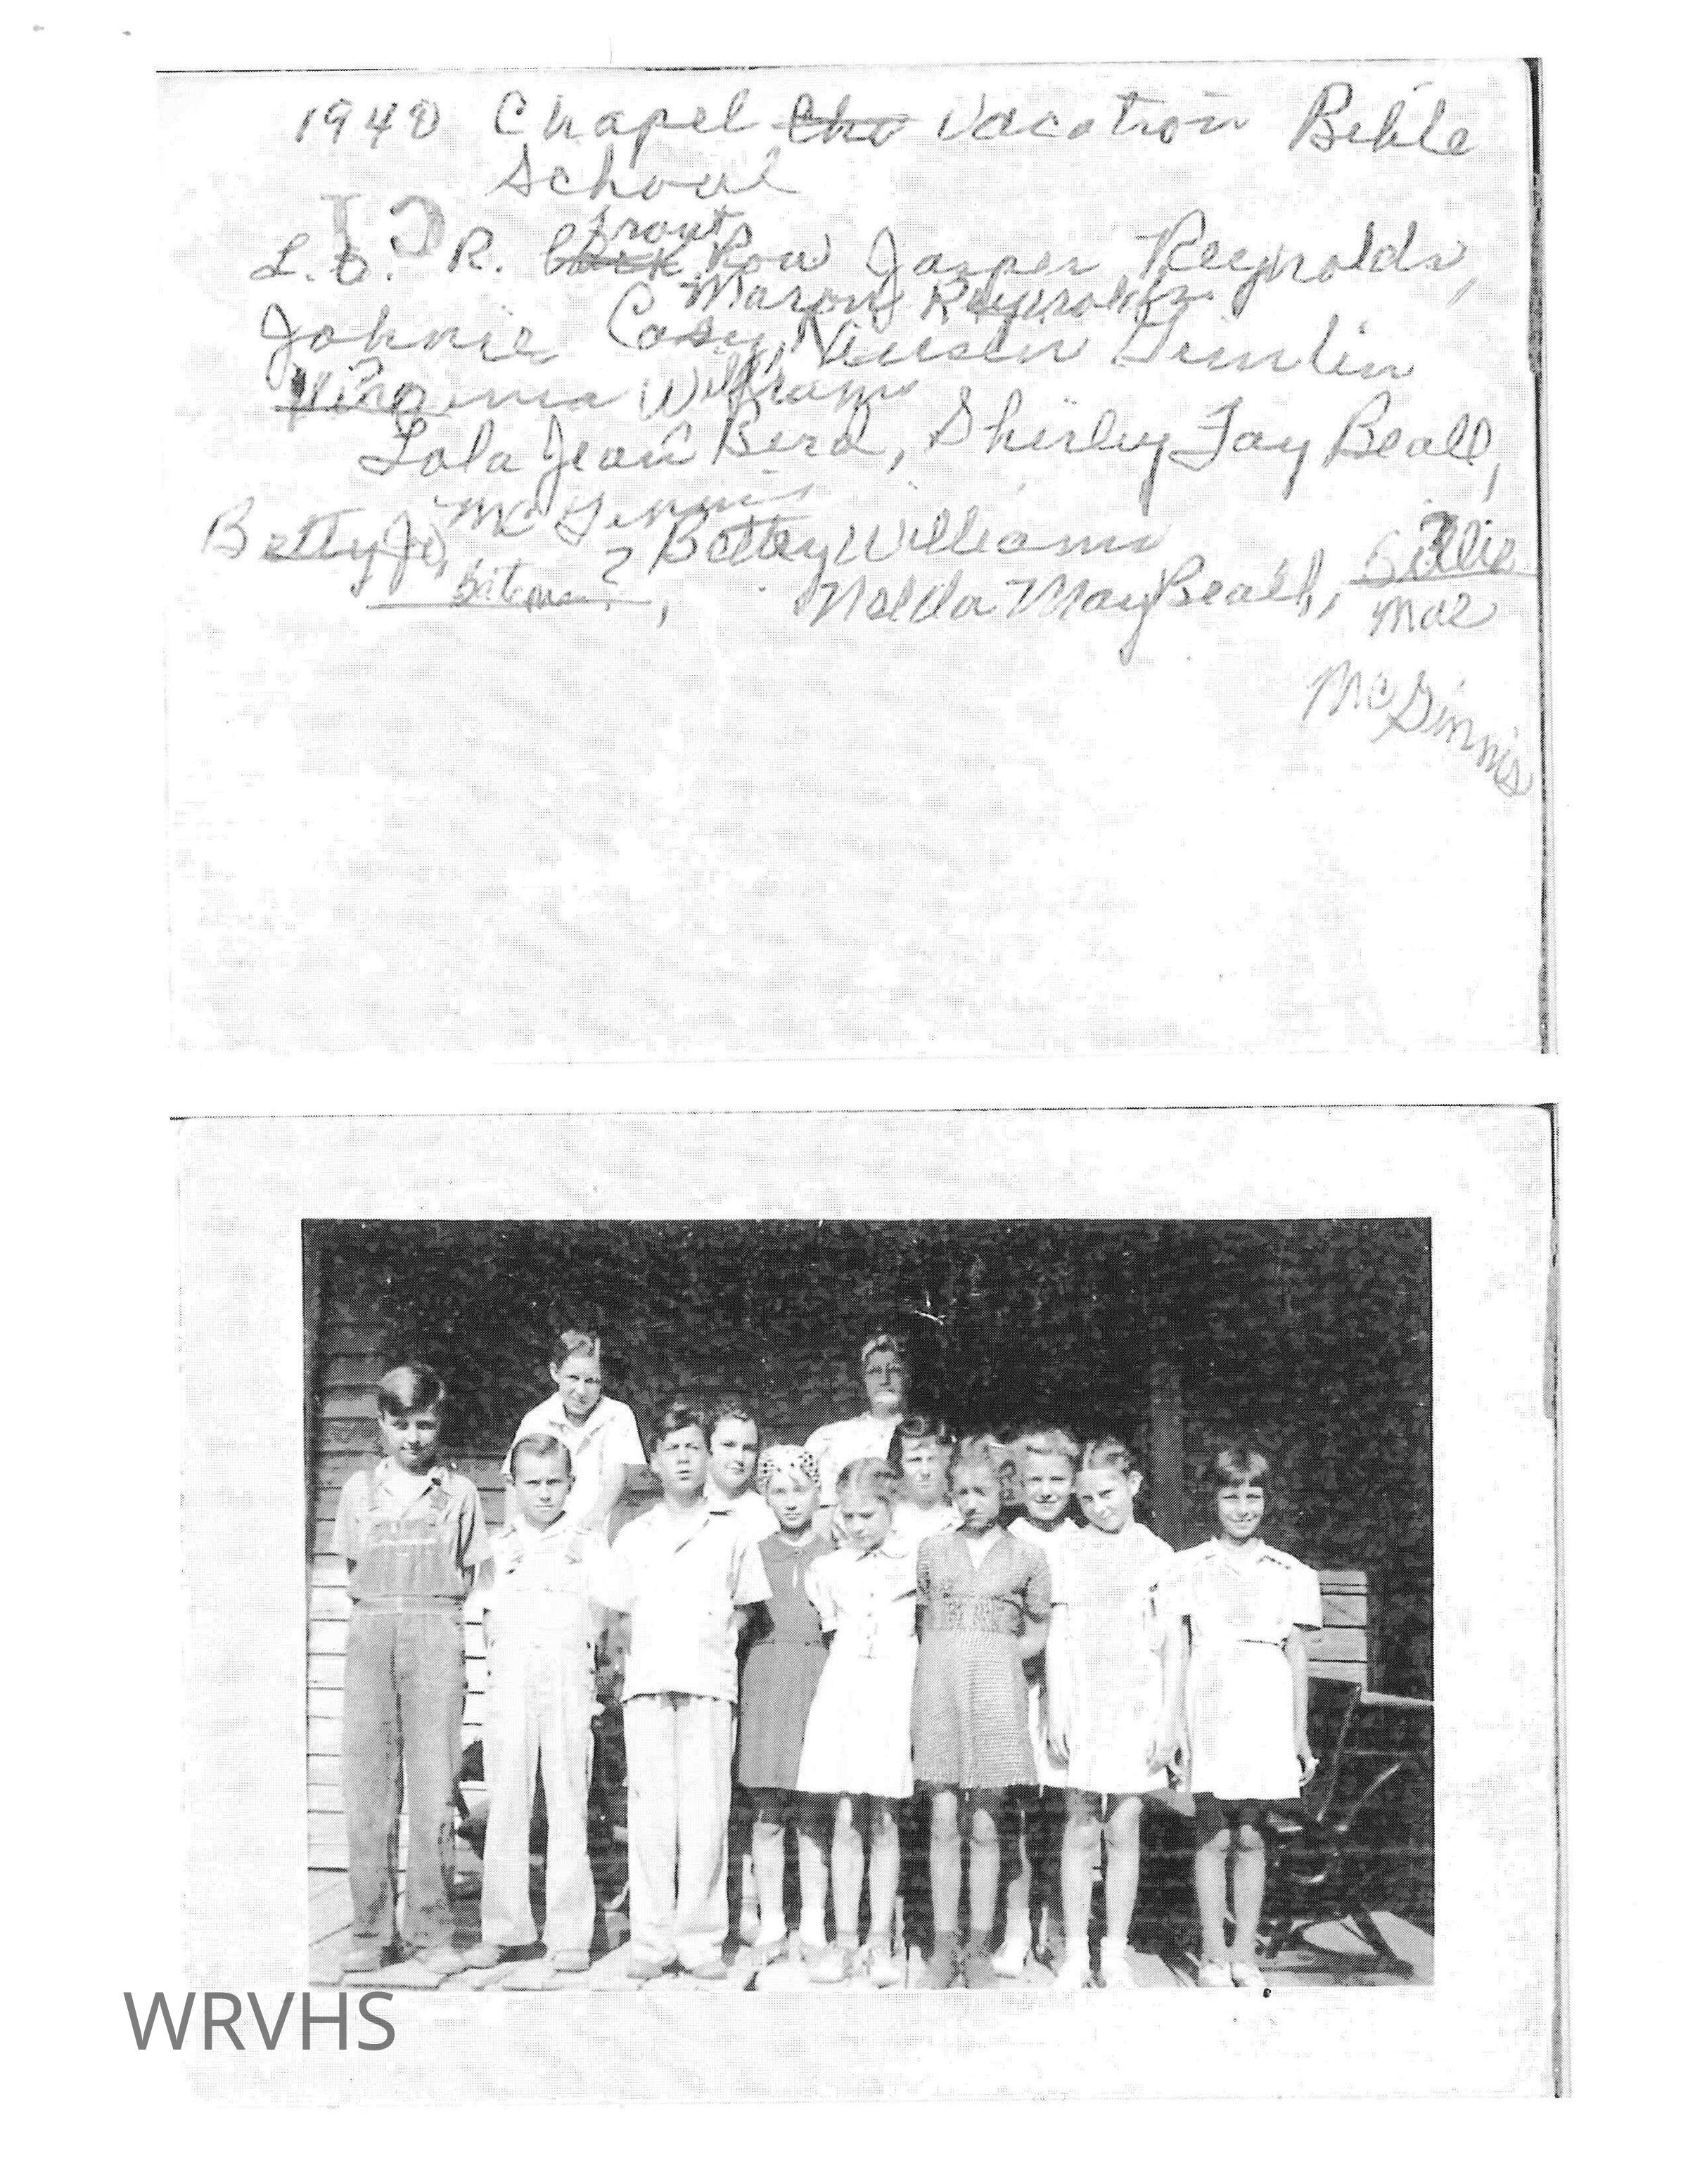 1940 Chapel Cha Vacation Bible
School
Front
L. to R. Back Row Jasper Reynolds,
Marion Reynolds
Johnie Casey, Grimlin
Virginia Williams
Lola Jean Bird, Shirley Fay Beall,
McGinnis
Betty Jo, ? Betty Williams
Nelda May Beall, Billie
Mae
McGinnis
WRVHS